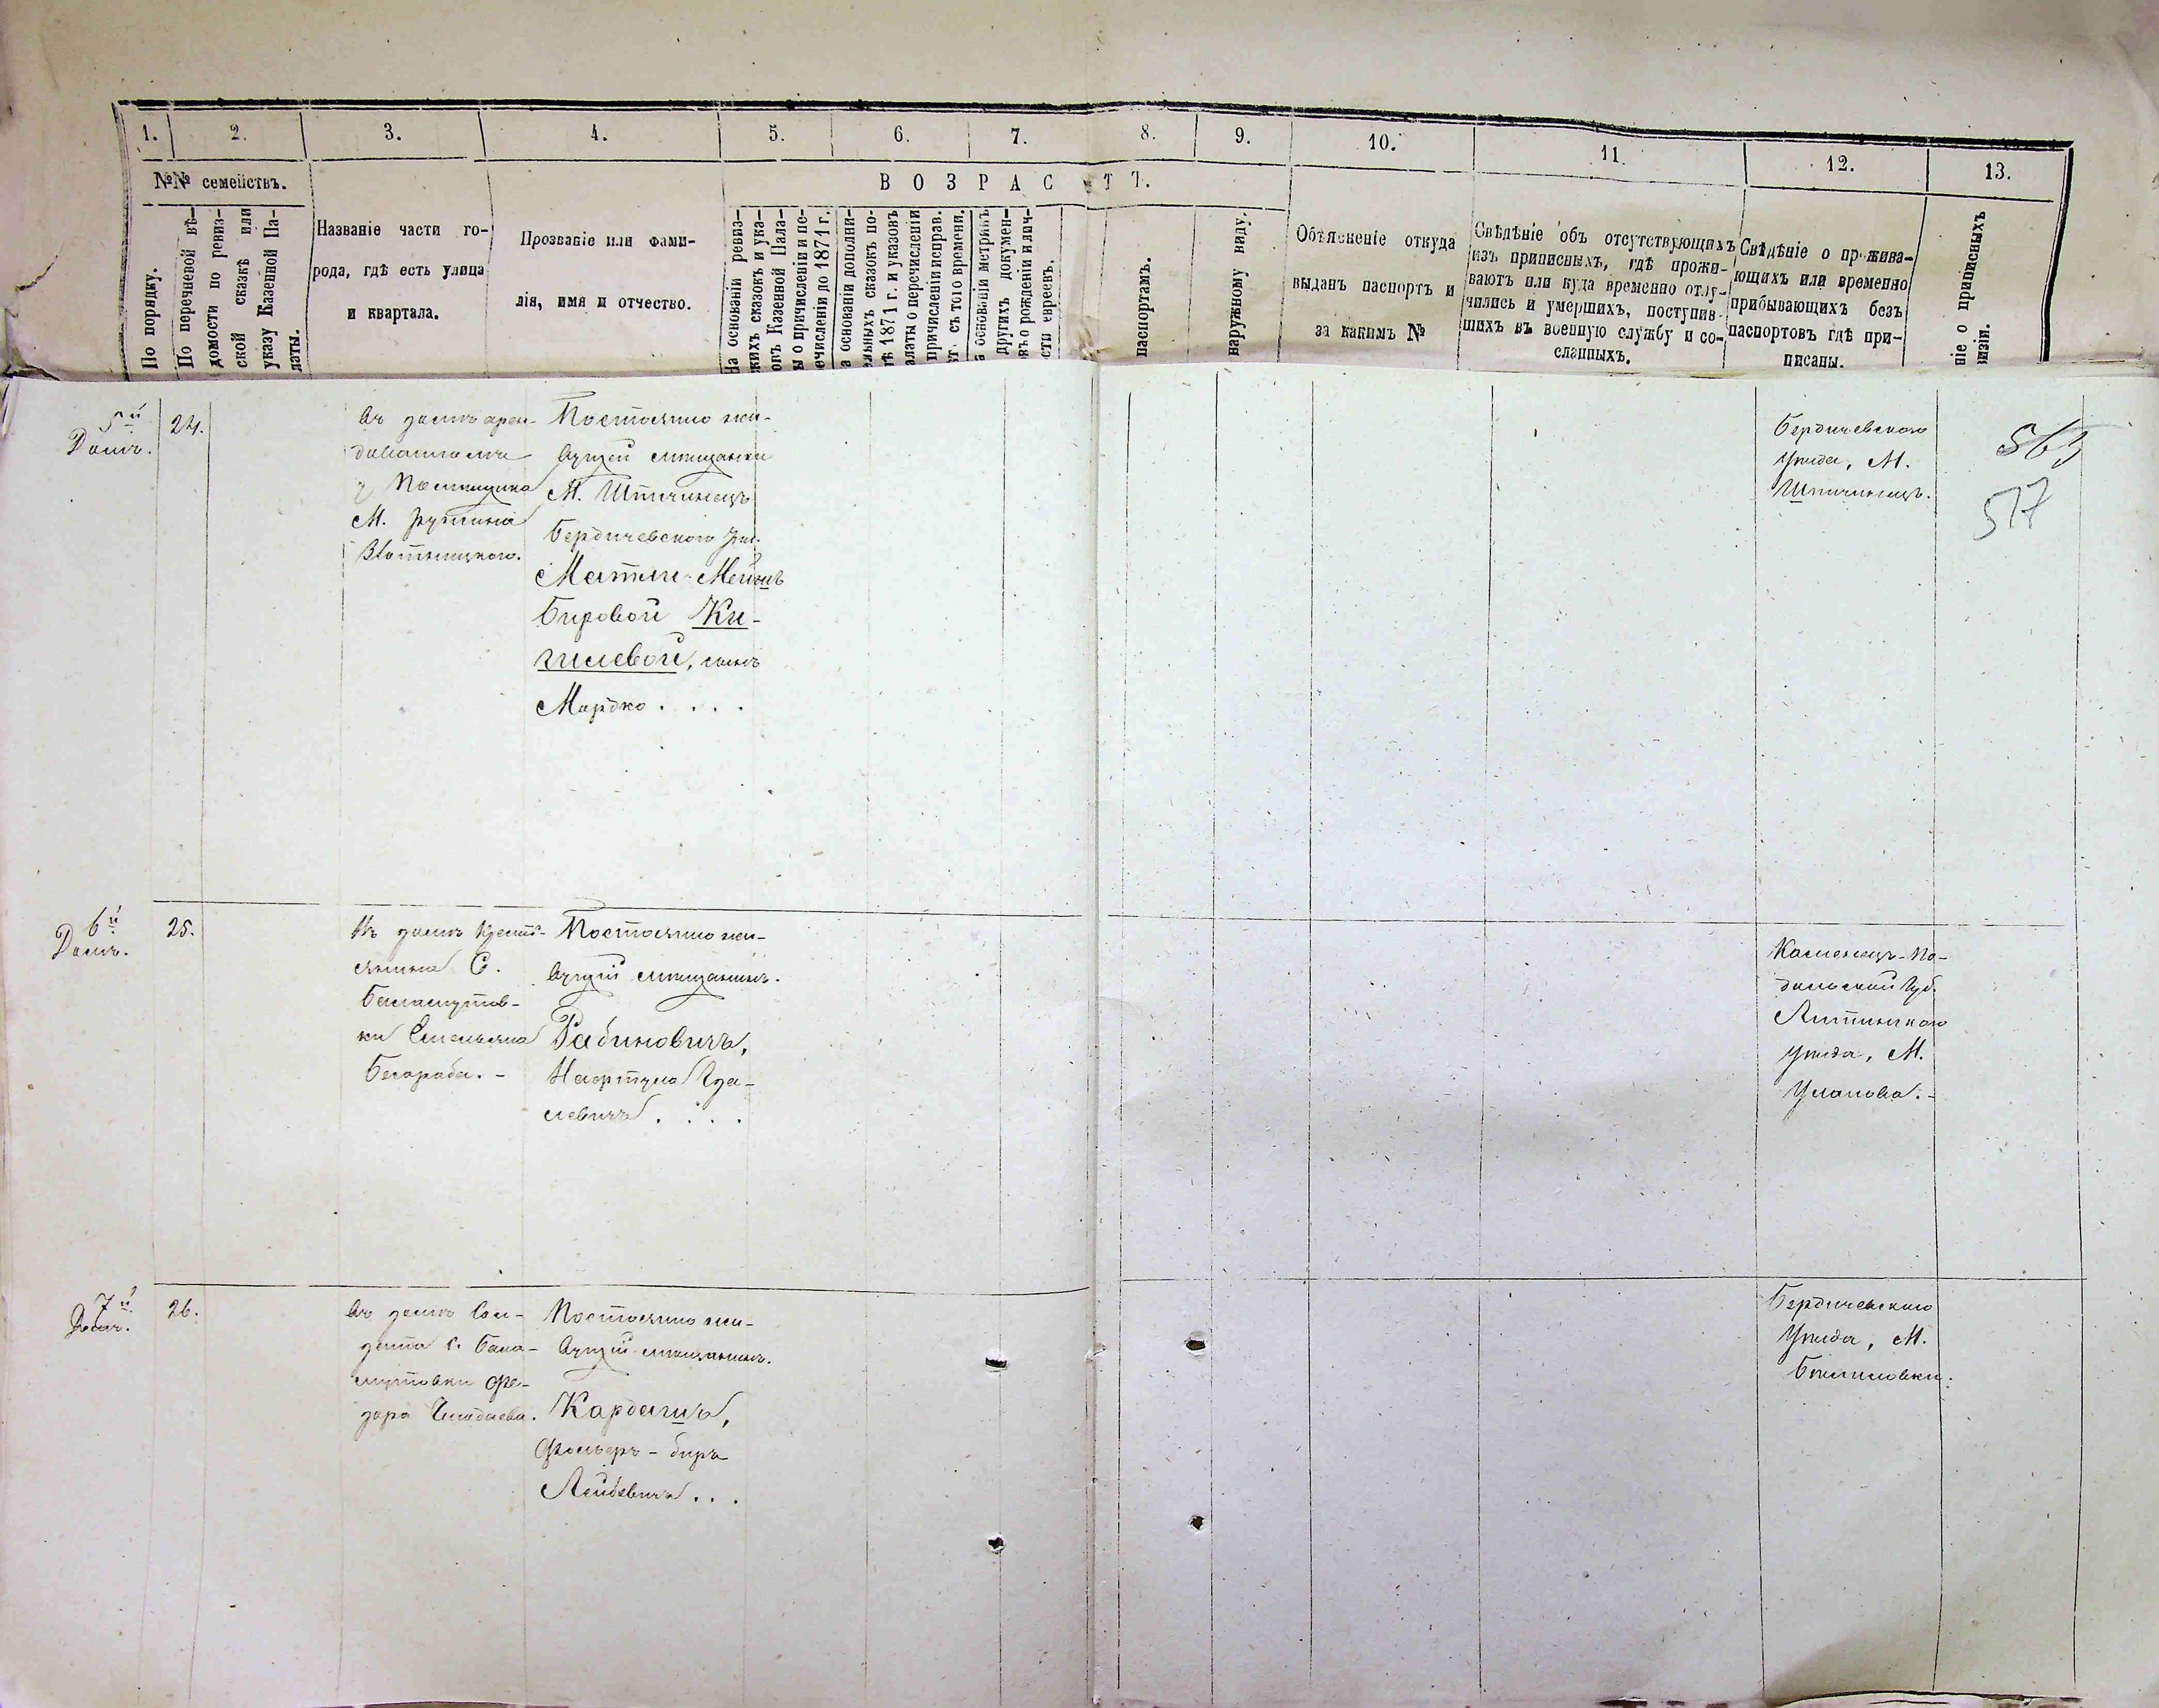 1. 2. 3. 4. 5. 6. 7. 8. 9. 10. 11. 12. 13.
№№ семействъ.
В О З Р А С Т Ъ.
По порядку.
По перечневой вѣ-
домости по ревиз-
ской сказкѣ или
указу Казенной Па-
латы.
Названіе части го-
рода, гдѣ есть улица
и квартала.
Прозваніе или фами-
лія, имя и отчество.
На основаніи ревиз-
скихъ сказокъ и ука-
овъ Казенной Пала-
ы о причисленіи и пе-
ечисленіи до 1871 г.
а основаніи дополни-
ельныхъ сказокъ по-
ѣ 1871 г. и указовъ
алаты о перечисленіи
причисленіи исправ.
ст. съ того времени.
а основаніи метрикъ
другихъ докумен-
въ о рожденіи и лич-
сти евреевъ.
паспортамъ.
наружному виду.
Объясненіе откуда
выданъ паспортъ и
за какимъ №
Свѣдѣніе объ отсутствующихъ
изъ приписныхъ, гдѣ прожи-
ваютъ или куда временно отлу-
чились и умершихъ, поступив-
шихъ въ военную службу и со-
сланныхъ.
Свѣдѣніе о прожива-
ющихъ или временно
прибывающихъ безъ
паспортовъ гдѣ при-
писаны.
ніе о приписныхъ
визіи.
5й
Домъ.
24.
въ домѣ арен-
доватіемъ
у Помѣщика
М.
Постоянно жи-
вущей мѣщанки
М. Шпичинецъ
Бердичевскаго уѣз.
Матли-Мейшъ
Бировой Ки-
гилевой, сынъ
Мардко . . . .
Бердичевскаго
Уѣзда, М.
Шпичинецъ.
517
6й
Домъ.
25.
Въ домѣ Крестъ-
янина С.
Баламутов-
ки Емельяна
Бесараба. -
Постоянно жи-
вущій мѣщанинъ.
Рабиновичъ,
Нафтула Гда-
левичъ . . . .
Каменецъ-По-
дольской Губ.
Литинскаго
уѣзда, М.
Уланова. -
7й
Домъ.
26.
въ домѣ Сол-
дата с. Бала-
мутовки Фе-
дора
Постоянно жи-
вущій мѣщанинъ.
Кардашъ,
Фроимъ-беръ
Лейбевичъ . . .
Бердичевскаго
Уѣзда, М.
Бѣлиловки.